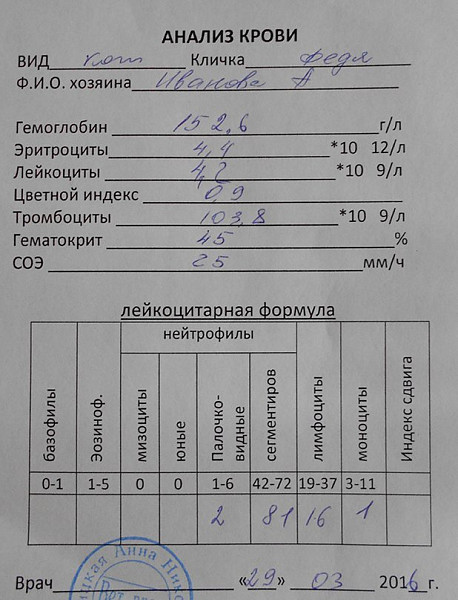 АНАЛИЗ КРОВИ
ВИД кот Кличка Федя
Ф.И.О. хозяина Иванова А
Гемоглобин 152,6 г/л
Эритроциты 4,4 *10 12/л
Лейкоциты 4,2 *10 9/л
Цветной индекс 0,9
Тромбоциты 103,8 *10 9/л
Гематокрит 45 %
СОЭ 25 мм/ч
лейкоцитарная формула
нейтрофилы
базофилы Эозиноф. мизоциты юные Палочко-видные сегментиров лимфоциты моноциты Индекс сдвига
0-1 1-5 0 0 1-6 42-72 19-37 3-11
2 81 16 1
цкая Анна Нико
Вет
Врач «29» 03 2016 г.